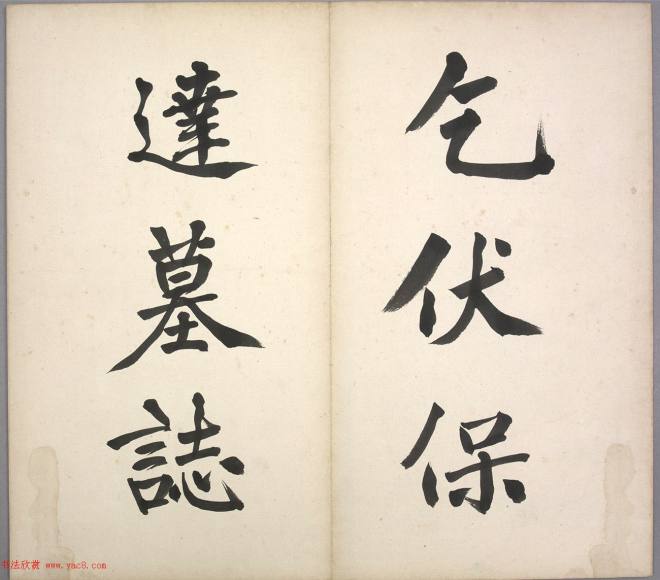 乞伏保
達墓誌
书法欣赏 www.yac8.com